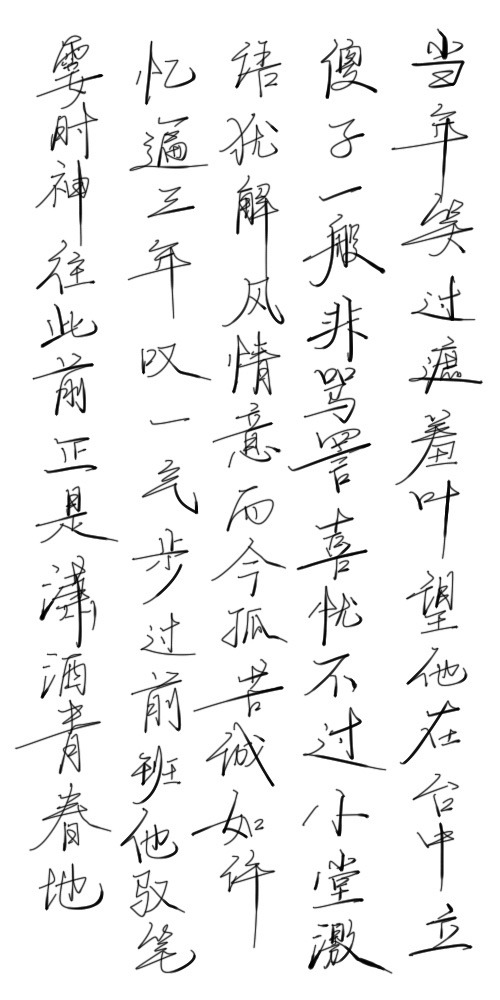 当年笑过遮羞叶望他在台中立
傻子一般非骂詈喜忧不过小堂激
语犹解风情意而今孤苦诚如许
忆遍三年叹一气步过前班他驭笔
霎时神往此前正是潇洒青春地